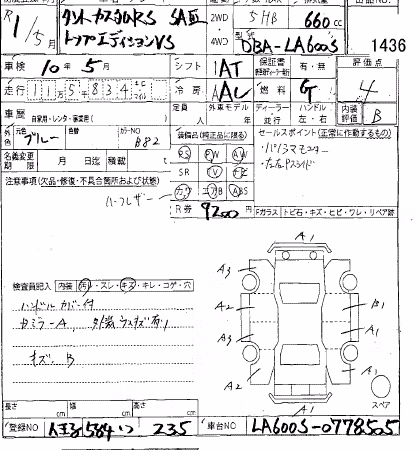 R1/5月 タントカスタムRS SAⅢ 2WD 5HB 660cc
トップエディションVS 4WD 型式 DBA-LA600S 1436
車検 10年5月 シフト 1AT 保証書 有・無 評価点
走行 115834 km マイル 冷房 AAC 燃料 G 4
車歴 自家用・レンタ・事業用( ) 定員 人 外車モデル 年 ディーラー 並行 ハンドル 左・右 内装評価 B
外色 元色 ブルー 色替 カラーNO B82 装備品(純正品に限る) セールスポイント(正常に作動するもの)
名義変更期限 月 日迄 積載( ) PS PW AW ・パノラマモニター
SR ・左右Pスライド
注意事項(欠品・修復・不具合箇所および状態) カワ エアB ABS
ハーフレザー R券 9200 Fガラス トビ石・キズ・ヒビ・ワレ・リペア跡
A1
検査員記入 内装 汚レ・スレ・キズ・キレ・コゲ・穴 A3 A1
ハンドルカバー付 A2 B1
A3 A1
キズ、B A2 A1
A1 スペア
長さ cm 幅 cm 高さ cm
登録NO 584 235 車台NO LA600S-0778505